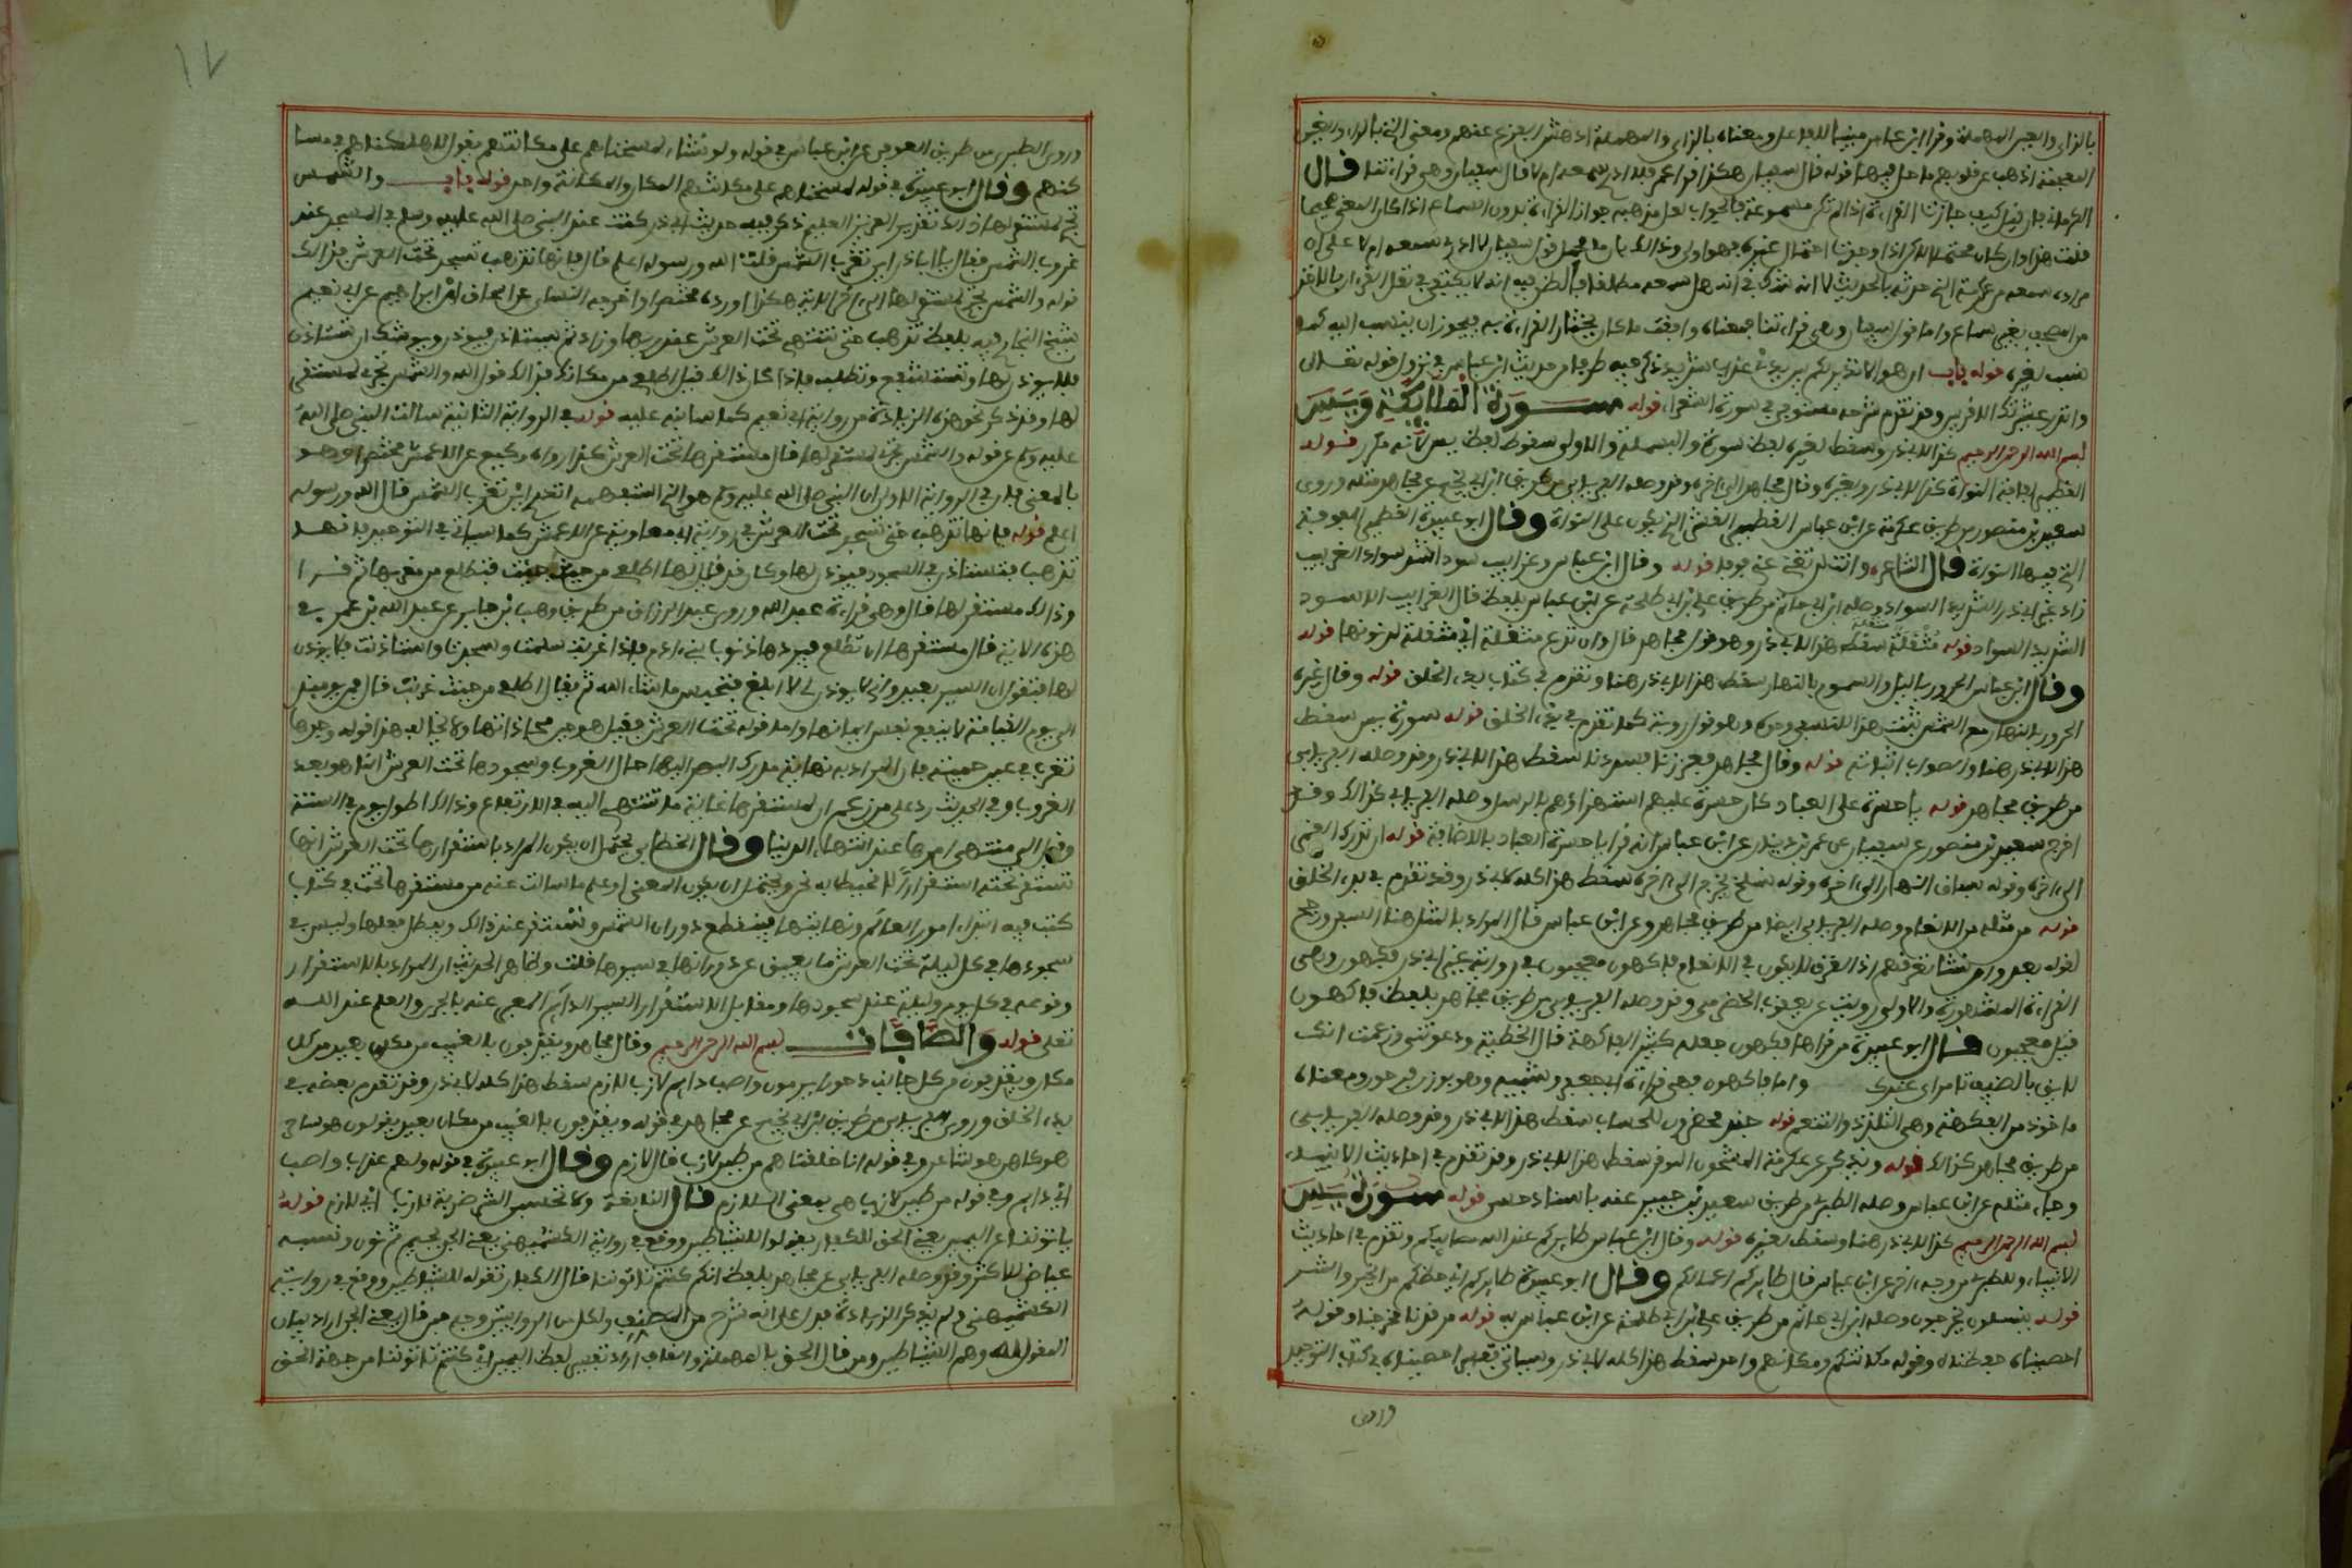 بالزاي والعين المهملة وقرأ ابن عباس مبنيا للفاعل ومعناه بالزاي والمهملة ادهش الفزع عنهم ومعنى التي بالراء والغين
المعجمة اذهب عن قلوبهم ما حل فيها قوله قال سفيان هكذا قرأ عمرو فلا ادري سمعه ام لا قال سفيان وهي قراءتنا قال
الكرماني فان قيل كيف جازت القراءة اذا لم تكن مسموعة فالجواب لعل مذهبه جواز القراءة بدون السماع اذا كان المعنى صحيحا
قلت هذا وان كان محتملا لكن اذا وجدنا احتمالا غيره فهو اولى وذلك بان محمل قول سفيان لا ادري سمعه ام لا على ان
مراده سمعه من عكرمة الذي حدثه بالحديث لا انه شك في انه هل سمعه مطلقا فالظن فيه انه لا يكتفي في نقل القرءان بالاخذ
من الصحف بغير سماع واما قول سفيان وهي قراءتنا فمعناه وافقت ما كان يختار القراءة به فيجوز ان ينسب اليه كما
نسب لغيره قوله باب ان هو الا نذير لكم بين يدي عذاب شديد ذكر فيه طرفا من حديث ابن عباس في نزول قوله تعالى
وانذر عشيرتك الاقربين وقد تقدم شرحه مستوفى في سورة الشعراء قوله سورة الملائكة ويس
بسم الله الرحمن الرحيم كذا لابي ذر وسقط لغيره لفظ سورة والبسملة والاولى سقوط لفظ يس لانه مكرر قوله
القطمير لفافة النواة كذا لابي ذر ولغيره وقال مجاهد الى ءاخره وقد وصله الفريابي من طريق ابن ابي نجيح عن مجاهد مثله وروى
سعيد بن منصور من طريق عكرمة عن ابن عباس القطمير القشر الذي يكون على النواة وقال ابو عبيدة القطمير الفوفة
التي فيها النواة قال الشاعر وانت لن تغني عني فوفا قوله وقال ابن عباس وغرابيب سود اشد سواد الغربيب
زاد غير ابي ذر الشديد السواد وصله ابن ابي حاتم من طريق علي بن ابي طلحة عن ابن عباس بلفظ قال الغرابيب الاسود
الشديد السواد قوله مثقلة مثقلة سقط هذا لابي ذر وهو قول مجاهد قال وان تدع مثقلة اي مثقلة لذنوبها قوله
وقال ابن عباس الحرور بالليل والسموم بالنهار سقط هذا لابي ذر هنا وتقدم في كتاب بدء الخلق قوله وقال غيره
الحرور بالنهار مع الشمس ثبت هذا للنسفي وحده وهو قول روبة كما تقدم في بدء الخلق قوله سورة يس سقط
هذا لابي ذر هنا والصواب اثباته قوله وقال مجاهد فعززنا فشددنا سقط هذا لابي ذر وقد وصله الفريابي
من طريق مجاهد قوله يا حسرة على العباد كان حسرة عليهم استهزاؤهم بالرسل وصله الفريابي كذلك وقد
اخرج سعيد بن منصور عن سفيان عن عمرو بن دينار عن ابن عباس انه قرأ يا حسرة العباد بالاضافة قوله ان تدرك القمر
الى ءاخره وقوله سابق النهار الى ءاخره وقوله نسلخ نخرج الى ءاخره سقط هذا كله لابي ذر وقد تقدم في بدء الخلق
قوله من مثله من الانعام وصله الفريابي ايضا من طريق مجاهد وعن ابن عباس قال المراد بالمثل هنا السفن ورجح
لقوله بعد وان نشأ نغرقهم اذ الغرق لا يكون في الانعام فكهون معجبون في رواية غير ابي ذر فاكهون وهي
القراءة المشهورة والاولى رويت عن يعقوب الحضرمي وقد وصله الفريابي من طريق مجاهد بلفظ فاكهون
قيل معجبون قال ابو عبيدة من قرأها فكهون جعله كثير الفاكهة قال الحطيئة ودعوتني وزعمت انك
لابن بالصيف تامر اي عندك واما فاكهون فهي قراءة ابي جعفر وشيبة وهو بوزن فرحون ومعناه
ماخوذ من الفكهة وهي التلذذ والتنعم قوله جند محضرون للحساب سقط هذا لابي ذر وقد وصله الفريابي
من طريق مجاهد كذلك قوله ويذكر عن عكرمة المشحون الموقر سقط هذا لابي ذر وقد تقدم في احاديث الانبياء
وجاء مثله عن ابن عباس وصله الطبري من طريق سعيد بن جبير عنه باسناد حسن قوله سورة يس
بسم الله الرحمن الرحيم كذا لابي ذر هنا وسقط لغيره قوله وقال ابن عباس طائركم عند الله مصائبكم وتقدم في احاديث
الانبياء وللطبري من وجه ءاخر عن ابن عباس قال طائركم اعمالكم وقال ابو عبيدة طائركم اي حظكم من الخير والشر
قوله ينسلون يخرجون وصله ابن ابي حاتم من طريق علي بن ابي طلحة عن ابن عباس به قوله مرقدنا مخرجنا وقوله
احصيناه حفظناه وقوله مكانتكم ومكانهم واحد سقط هذا كله لابي ذر وسيأتي تفسير احصيناه في كتاب التوحيد
وروى
١٧
وروى الطبري من طريق العوفي عن ابن عباس في قوله ولو نشاء لمسخناهم على مكانتهم يقول لاهلكناهم في مسا
كنهم وقال ابو عبيدة في قوله لمسخناهم على مكانتهم المكان والمكانة واحد قوله باب والشمس
تجري لمستقر لها ذلك تقدير العزيز العليم ذكر فيه حديث ابي ذر كنت عند النبي صلى الله عليه وسلم في المسجد عند
غروب الشمس فقال يا ابا ذر اين تغرب الشمس قلت الله ورسوله اعلم قال فانها تذهب تسجد تحت العرش فذلك
قوله والشمس تجري لمستقر لها الى ءاخر الاية هكذا اورده مختصرا واخرجه النسائي عن اسحاق ابن ابراهيم عن ابي نعيم
شيخ البخاري فيه بلفظ تذهب حتى تنتهي تحت العرش عند ربها وزاد ثم تستاذن فيوذن ويوشك ان تستاذن
فلا يوذن لها وتستشفع وتطلب فاذا كان ذلك قيل اطلعي من مكانك فذلك قول الله والشمس تجري لمستقر
لها وقد ذكر نحو هذه الزيادة من رواية ابي نعيم كما سانبه عليه قوله في الرواية الثانية سالت النبي صلى الله
عليه وسلم عن قوله والشمس تجري لمستقر لها قال مستقرها تحت العرش كذا رواه وكيع عن الاعمش مختصرا وهو
بالمعنى فان في الرواية الاولى ان النبي صلى الله عليه وسلم هو الذي استفهمه اتدري اين تغرب الشمس قال الله ورسوله
اعلم قوله فانها تذهب حتى تسجد تحت العرش في رواية ابي معاوية عن الاعمش كما سياتي في التوحيد فانها
تذهب فتستاذن في السجود فيوذن لها وكان قد قيل لها اطلعي من حيث جئت فتطلع من مغربها ثم قرأ
وذلك مستقر لها قال وهي قراءة عبد الله وروى عبد الرزاق من طريق وهب بن جابر عن عبد الله بن عمرو في
هذه الاية قال مستقرها ان تطلع فيردها ذنوب بني ءادم فاذا غربت سلمت وسجدت واستاذنت فلا يوذن
لها فتقول ان السير بعيد واني لا يوذن لي لا ابلغ فتحبس ما شاء الله ثم يقال اطلعي من حيث غربت قال فمن يومئذ
الى يوم القيامة لا ينفع نفسا ايمانها واما قوله تحت العرش فقيل هو حين محاذاتها ولا يخالف هذا قوله وجدها
تغرب في عين حمئة فان المراد به نهاية مدرك البصر اليها حال الغروب وسجودها تحت العرش انما هو بعد
الغروب وفي الحديث رد على من زعم ان لمستقرها غاية ما تنتهي اليه في الارتفاع وذلك اطول يوم في السنة
وقيل الى منتهى امرها عند انتهاء الدنيا وقال الخطابي يحتمل ان يكون المراد باستقرارها تحت العرش انها
تستقر تحته استقرارا لا نحيط به نحن ويحتمل ان يكون المعنى ان علم ما سالت عنه من مستقرها تحت في كتاب
كتب فيه ابتداء امور العالم ونهايتها فينقطع دوران الشمس وتستقر عند ذلك ويبطل فعلها وليس في
سجودها في كل ليلة تحت العرش ما يعيق عن دورانها في سيرها قلت وظاهر الحديث ان المراد بالاستقرار
وقوعه في كل يوم وليلة عند سجودها ومقابل الاستقرار السير الدائم المعبر عنه بالجري والعلم عند الله
تعالى قوله والصافات بسم الله الرحمن الرحيم وقال مجاهد ويقذفون بالغيب من مكان بعيد من كل
مكان ويقذفون من كل جانب دحورا يرمون واصب دائم لازب لازم سقط هذا كله لابي ذر وقد تقدم بعضه في
بدء الخلق وروى الفريابي من طريق ابن ابي نجيح عن مجاهد في قوله ويقذفون بالغيب من مكان بعيد يقولون هو ساحر
هو كاهن هو شاعر وفي قوله انا خلقناهم من طين لازب قال لازم وقال ابو عبيدة في قوله ولهم عذاب واصب
اي دايم وفي قوله من طين لازب هي بمعنى اللازم قال النابغة ولا تحسبن الشر ضربة لازب اي لازم قوله
تاتوننا عن اليمين يعني الحق الكفار تقوله للشياطين ووقع في رواية الكشميهني يعني الجن بجيم ثم نون ونسبه
عياض للاكثر وقد وصله الفريابي عن مجاهد بلفظ انكم كنتم تاتوننا قال الكفار تقوله للشياطين ووقع في رواية
الكشميهني ولم يذكر الزيادة فدل على انه شرح من المصنف ولكل من الروايتين وجه فمن قال يعني الجن اراد بيان
المقول له وهم الشياطين ومن قال الحق بالمهملة والقاف اراد تفسير لفظ اليمين اي كنتم تاتوننا من جهة الحق